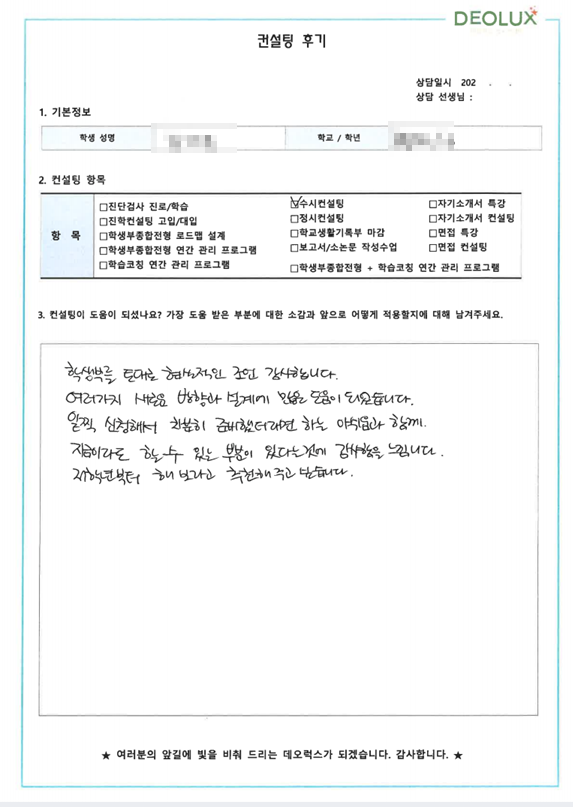 DEOLUX
컨설팅 후기
상담일시 202 . .
상담 선생님 :
1. 기본정보
학생 성명
학교 / 학년
2. 컨설팅 항목
항 목
□진단검사 진로/학습
□진학컨설팅 고입/대입
□학생부종합전형 로드맵 설계
□학생부종합전형 연간 관리 프로그램
□학습코칭 연간 관리 프로그램
☑수시컨설팅
□정시컨설팅
□학교생활기록부 마감
□보고서/소논문 작성수업
□자기소개서 특강
□자기소개서 컨설팅
□면접 특강
□면접 컨설팅
□학생부종합전형 + 학습코칭 연간 관리 프로그램
3. 컨설팅이 도움이 되셨나요? 가장 도움 받은 부분에 대한 소감과 앞으로 어떻게 적용할지에 대해 남겨주세요.
학생부를 토대로 현실적인 조언 감사합니다.
여러가지 새로운 방향과 설계에 많은 도움이 되었습니다.
일찍 신청해서 차분히 준비했더라면 하는 아쉬움과 함께.
지금이라도 할 수 있는 부분이 있다는것에 감사함을 느낍니다.
저학년부터 해 보라고 추천해 주고 싶습니다.
★ 여러분의 앞길에 빛을 비춰 드리는 데오럭스가 되겠습니다. 감사합니다. ★